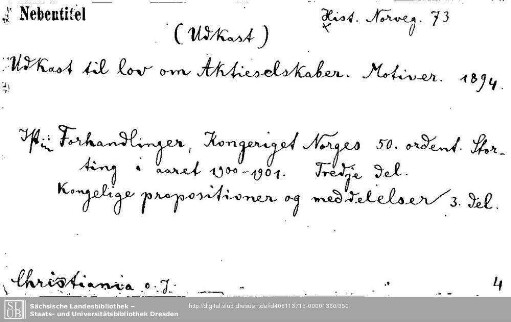 Nebentitel
Hist. Norveg. 73
(Udkast)
Udkast til lov om Aktieselskaber. Motiver. 1894.
Ist in: Forhandlinger, Kongeriget Norges 50. ordent. Stor-
ting i aaret 1900-1901. Tredje del.
Kongelige propositioner og meddelelser 3. del.
Christiania o. J. 4
Sächsische Landesbibliothek –
Staats- und Universitätsbibliothek Dresden